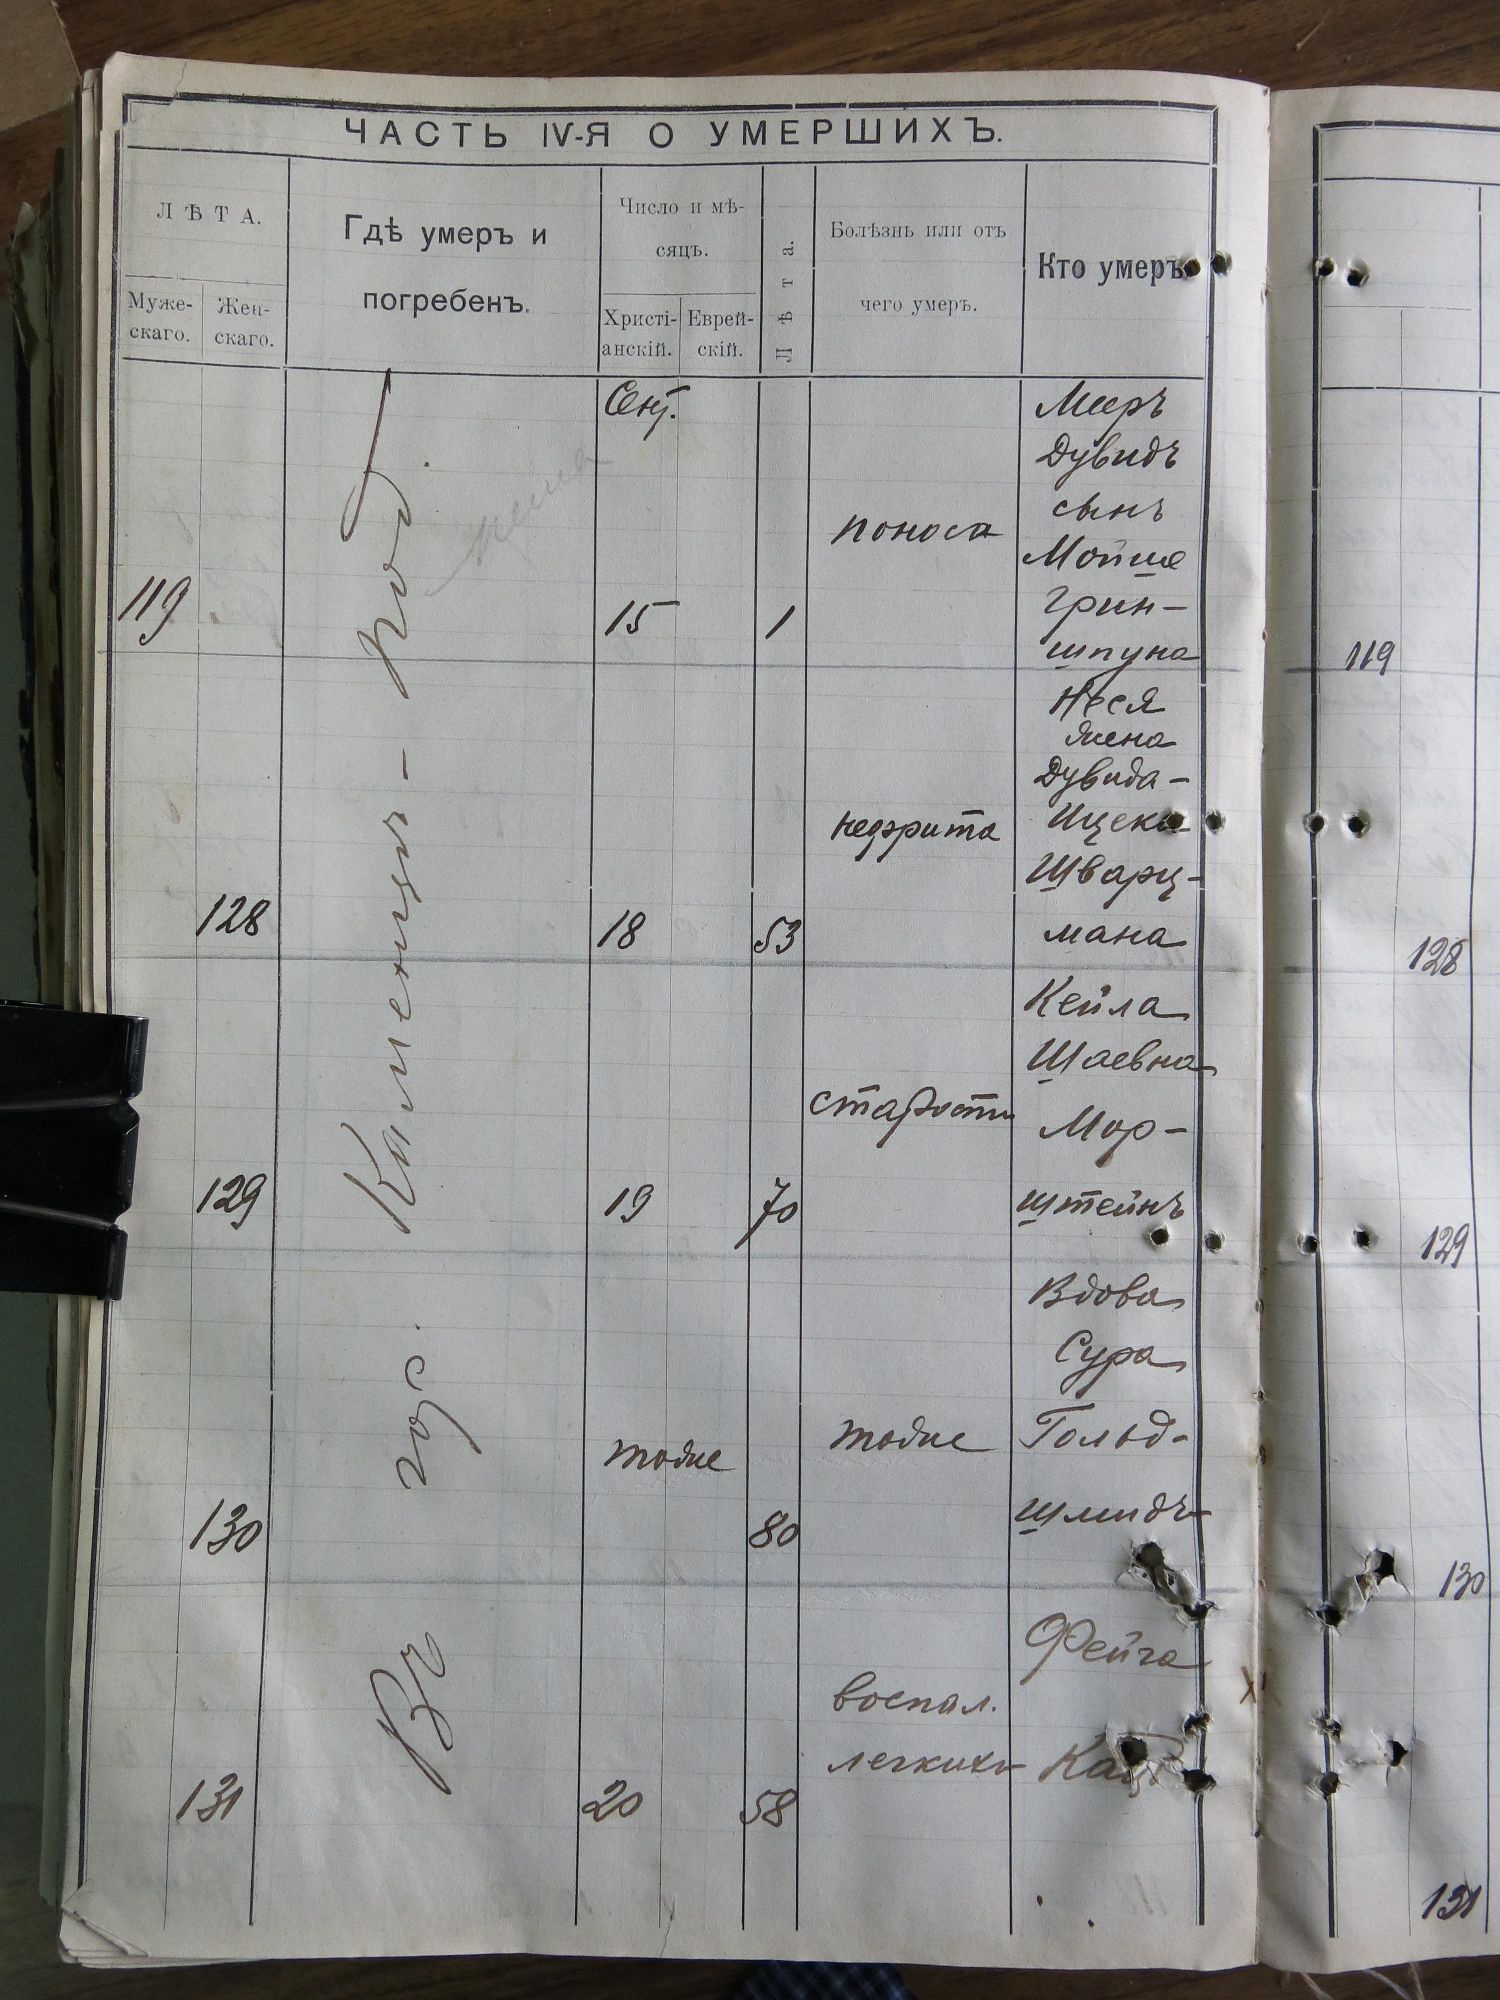 ЧАСТЬ IV-Я О УМЕРШИХЪ.
ЛѢТА.
Муже-
скаго.
Жен-
скаго.
Гдѣ умеръ и
погребенъ.
Число и мѣ-
сяцъ.
Христі-
анскій.
Еврей-
скій.
Лѣта.
Болѣзнь или отъ
чего умеръ.
Кто умеръ
Въ гор. Каменцѣ-Под.
Сент.
119
15
1
поноса
Мееръ
Дувидъ
сынъ
Мойше
Грин-
шпуна
128
18
53
нефрита
Неся
жена
Дувида-
Ицека
Шварц-
мана
129
19
70
старости
Кейла
Шаевна
Мор-
штейнъ
130
тоже
80
тоже
Вдова
Сура
Гольд-
шмидъ
131
20
58
воспал.
легкихъ
Фейга
Кацъ
119
128
129
130
131